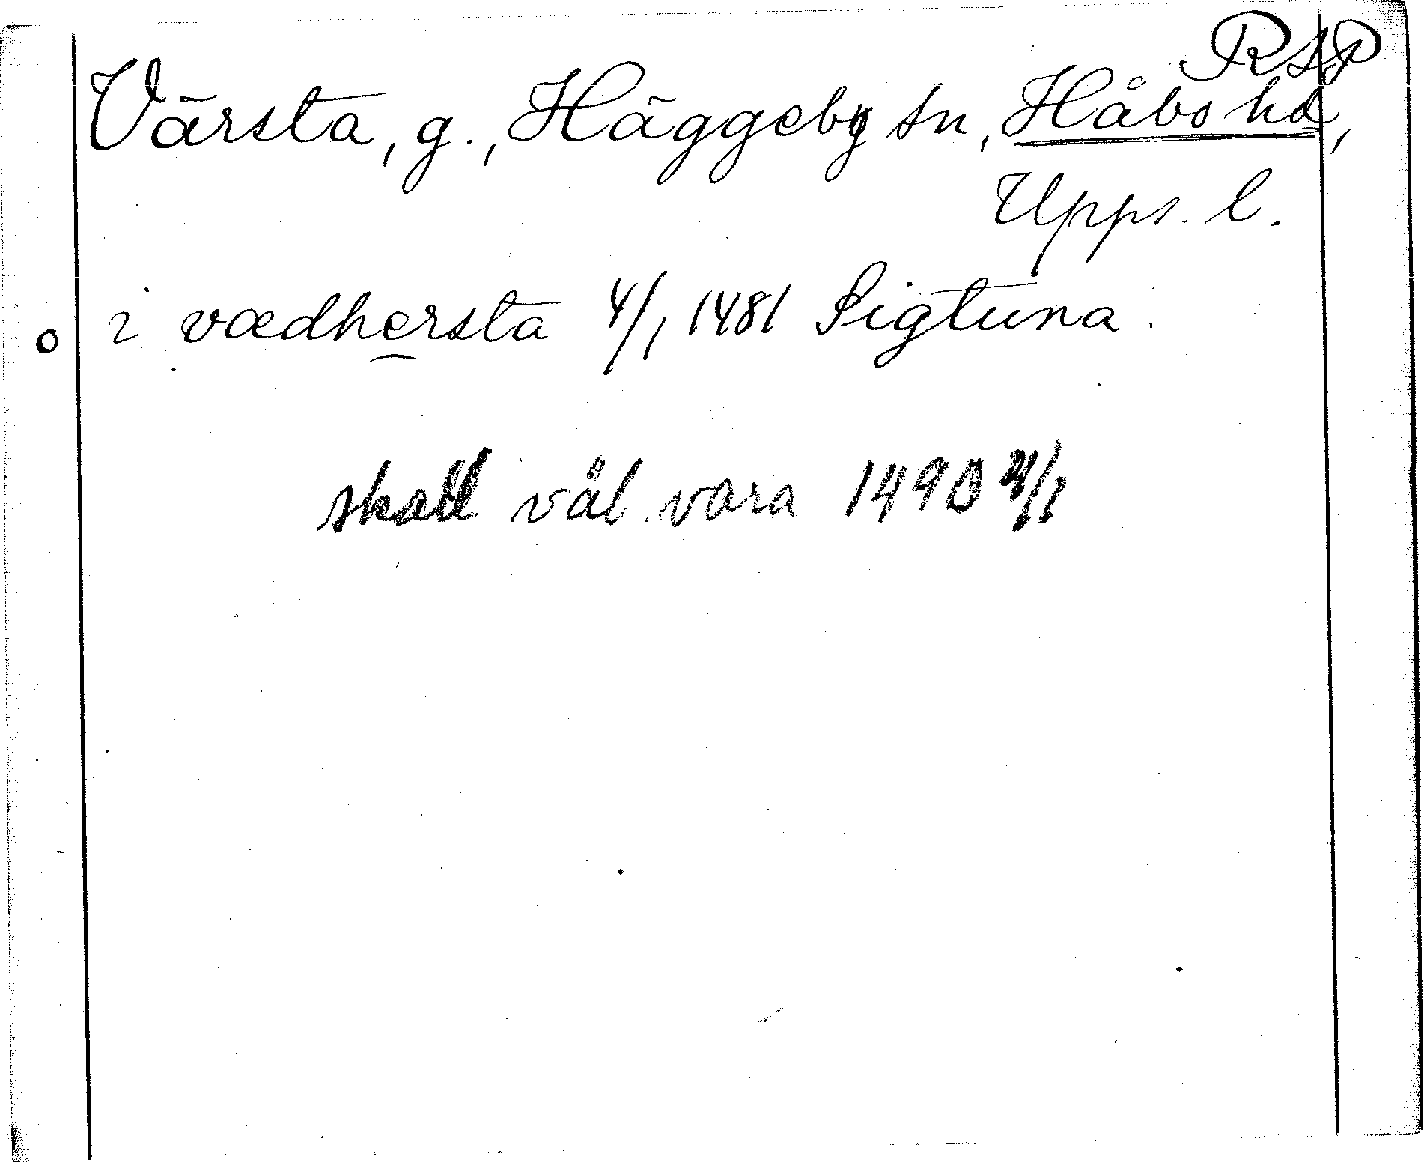 RAP
Värsta, g., Häggeby sn, Håbo hd,
Upps. l.
o i vædhersta 4/1 1481 Sigtuna.
skall väl vara 1490 4/1